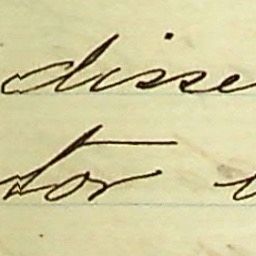 disse
tor